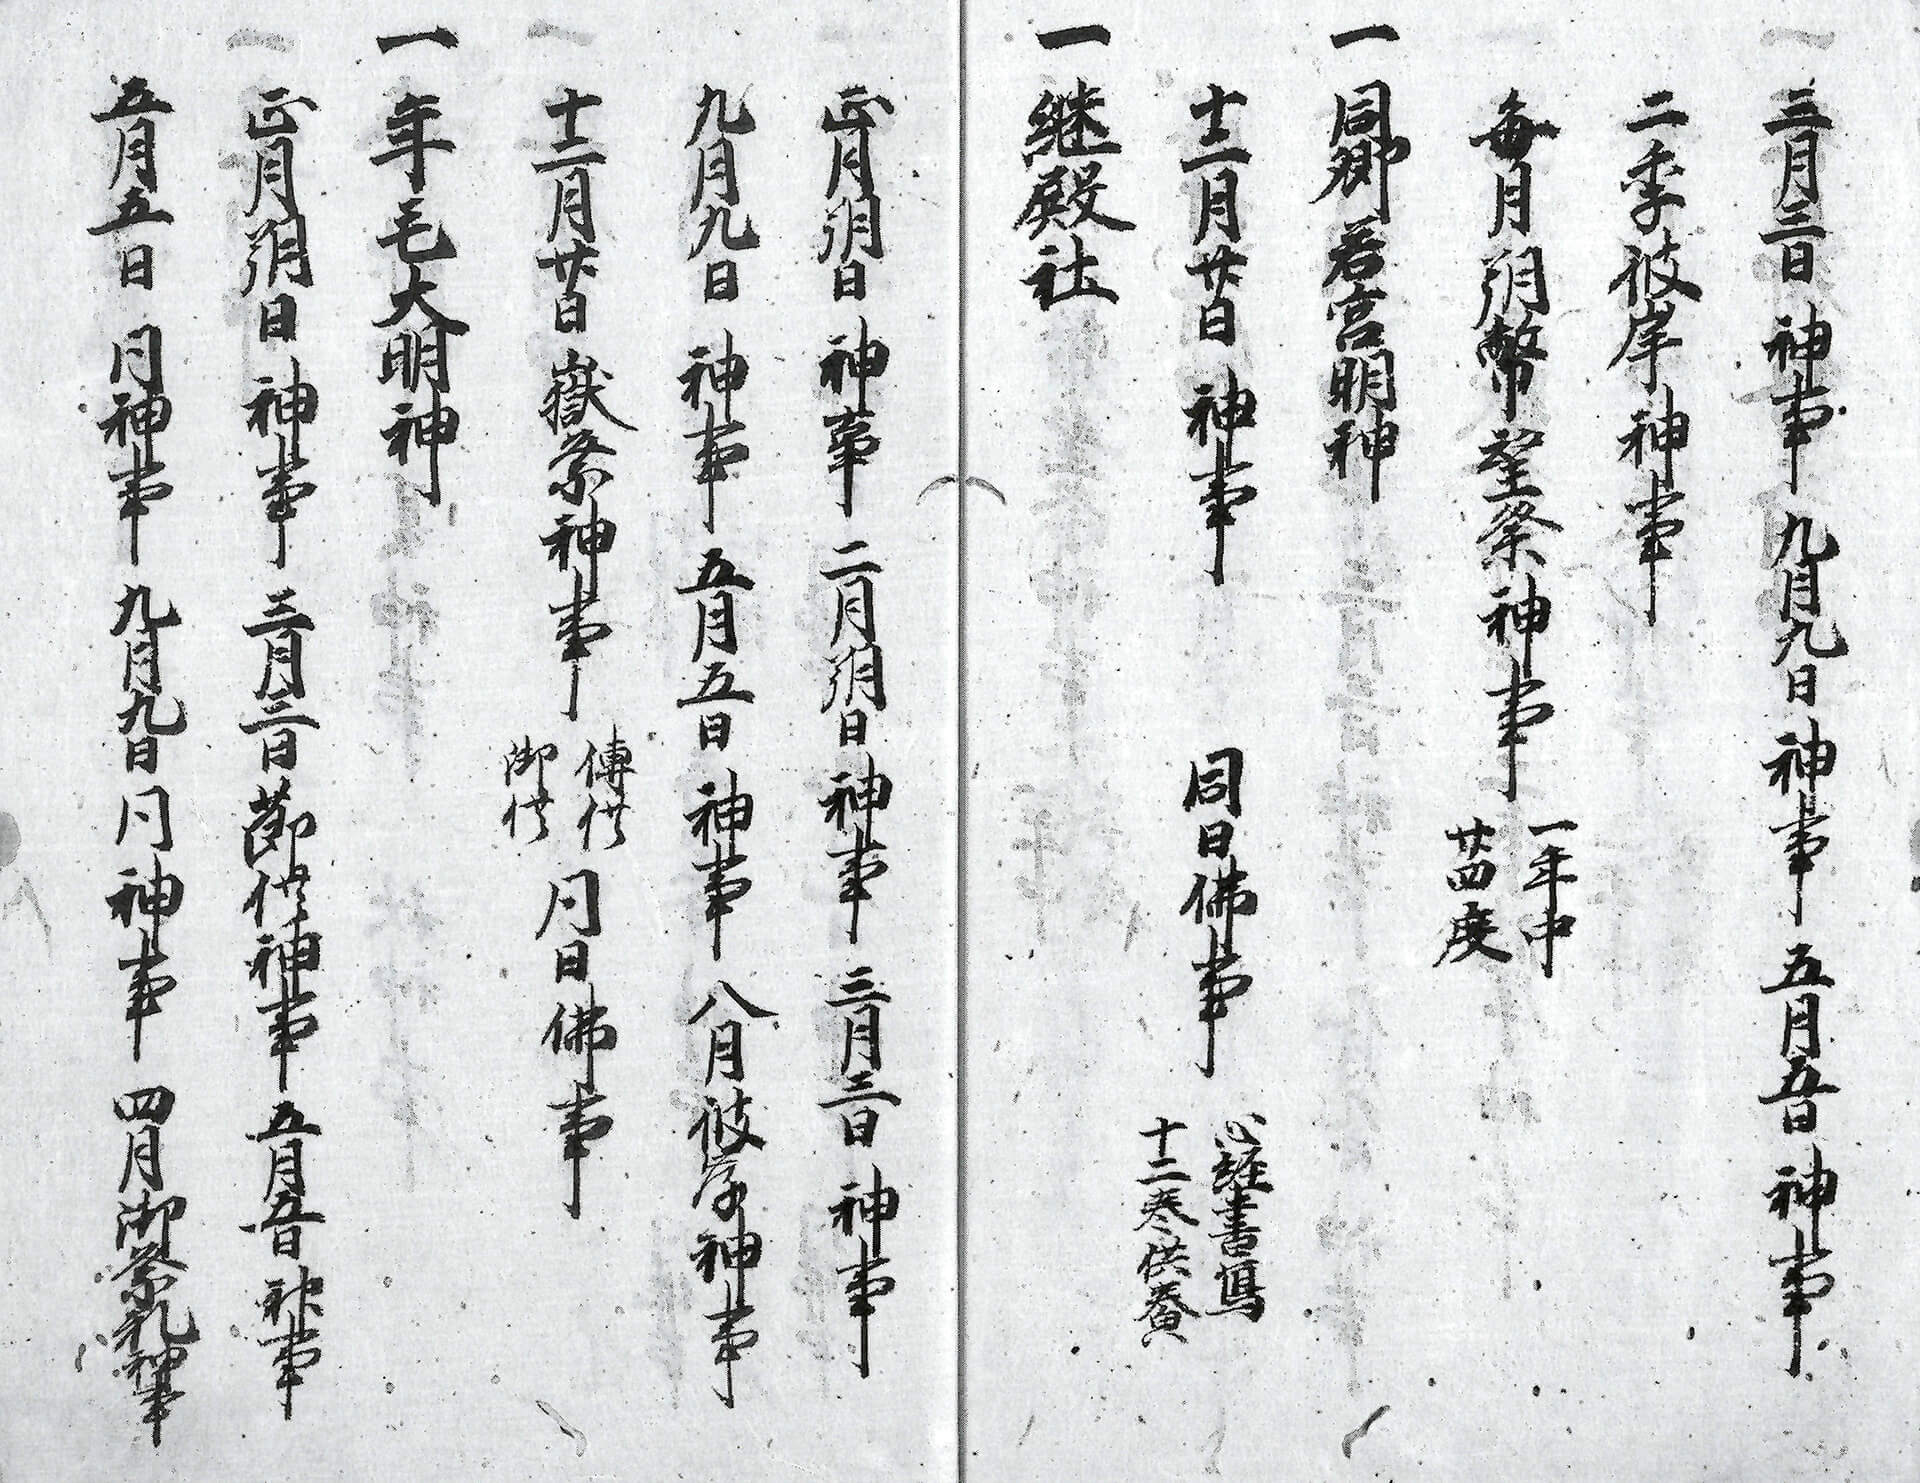 三月三日神事　九月九日神事　五月五日神事
二季彼岸神事
毎月朔幣望祭神事　一年中
廿四度
一同郷若宮明神
十二月廿日神事　同日佛事　心経書寫
十二巻供養
一継殿社
正月朔日神事　二月朔日神事　三月三日神事
九月九日神事　五月五日神事　八月彼岸神事
十二月廿日嶽祭神事　傳供
御供　同日佛事
一年毛大明神
正月朔日神事　三月三日御供神事　五月五日神事
五月五日同神事　九月九日同神事　四月御祭礼神事